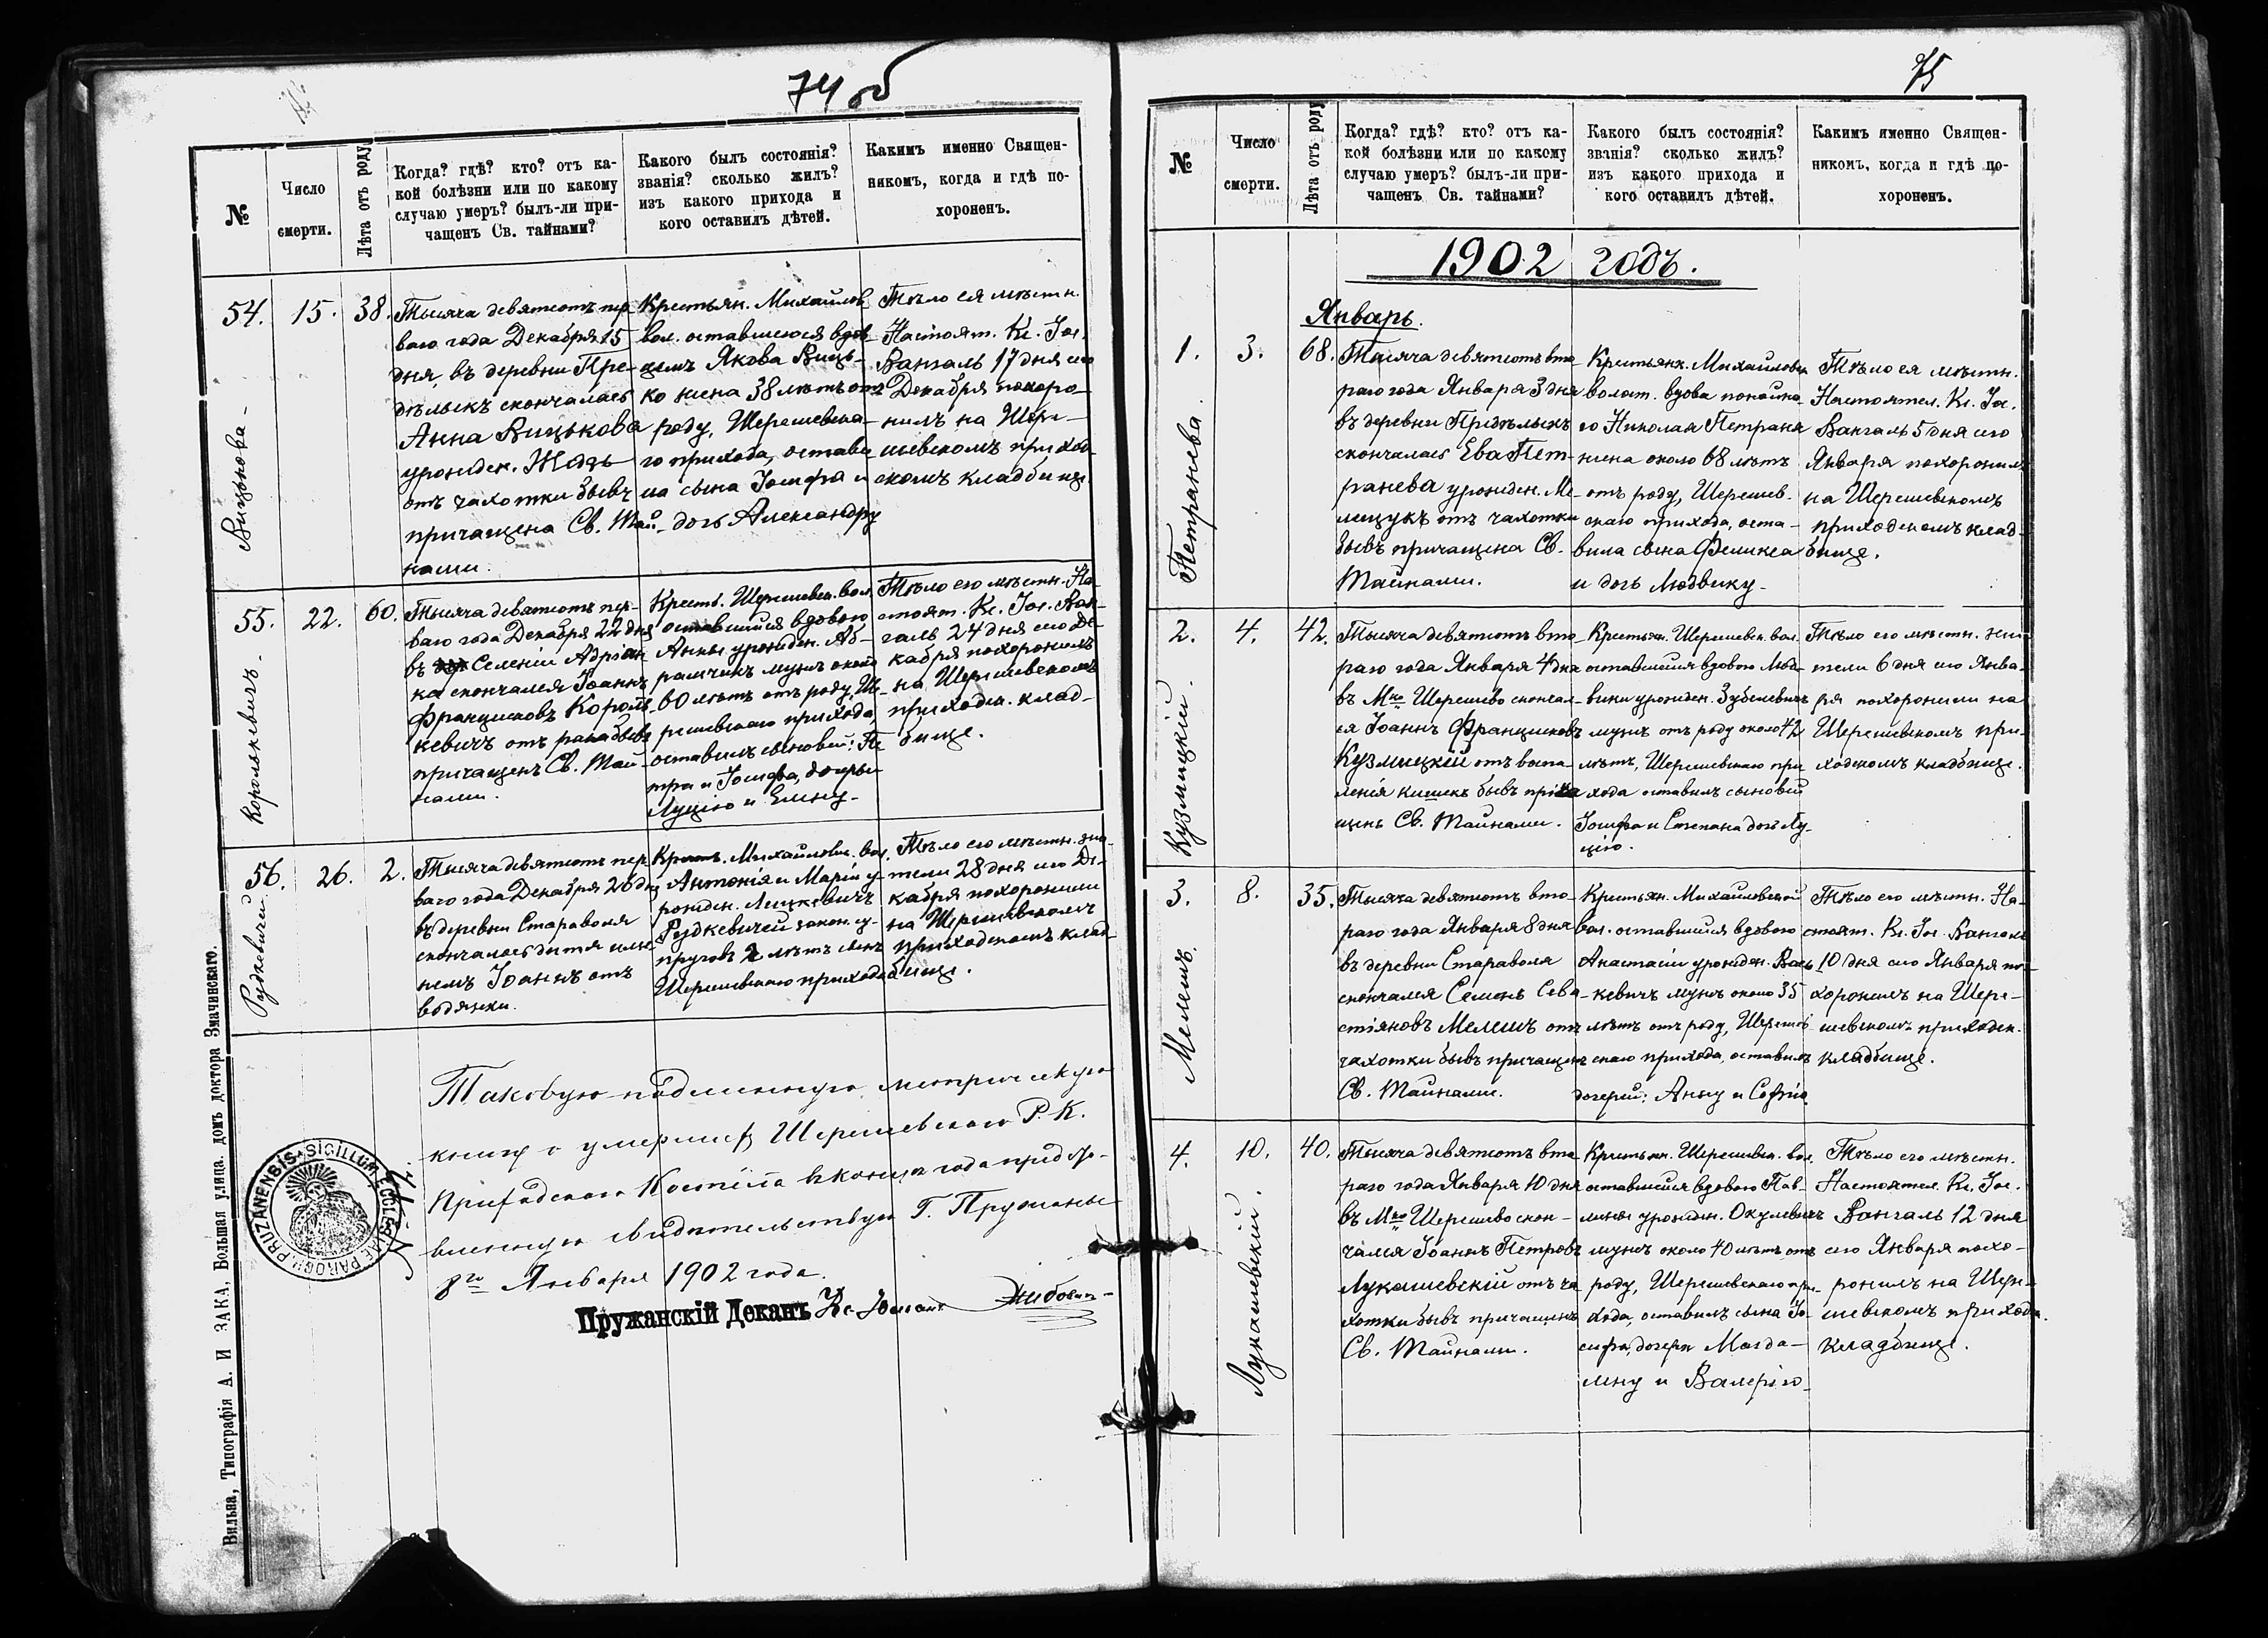 74 об
№
Число
смерти.
Лѣта отъ роду
Когда? гдѣ? кто? отъ ка-
кой болѣзни или по какому
случаю умеръ? былъ-ли при-
чащенъ Св. тайнами?
Какого былъ состоянія?
званія? сколько жилъ?
изъ какого прихода и
кого оставилъ дѣтей.
Какимъ именно Священ-
никомъ, когда и гдѣ по-
хороненъ.
54.
Вицькова
15.
38.
Тысяча девятсотъ пер
ваго года Декабря 15
дня, въ деревни Пре-
дѣльскъ скончалась
Анна Вицькова
урожден. Жадзь
отъ чахотки бывъ
причащена Св. Тай-
нами.
Крестьян. Михайлов
вол. оставшегося вдов
цемъ Якова Виць-
ко жена 38 лѣтъ отъ
роду, Шерешевска-
го прихода, остави
ла сына Іосифа и
дочь Александру
Тѣло ея мѣстн.
Настоят. Кс. Іос.
Вангаль 17 дня сего
Декабря похоро-
нилъ на Шере-
шевскомъ приход-
скомъ кладбище.
55.
Королькевичъ
22.
60.
Тысяча девятсотъ пер-
ваго года Декабря 22 дня
въ Селеніи Адріан
ка скончался Іоаннъ
Францисковъ Король-
кевичъ отъ рака бывъ
причащенъ Св. Тай-
нами.
Крест. Шерешевск. вол
оставшійся вдовою
Анны урожден. Аб-
рамчикъ мужъ около
60 лѣтъ отъ роду, Ше-
решевскаго прихода,
оставилъ сыновей: Пе
тра и Іосифа, дочерей
Луцію и Елену
Тѣло его мѣстн. На-
стоят. Кс. Іос. Ван-
галь 24 дня сего Де-
кабря похоронилъ
на Шерешевскомъ
приходск. клад-
бище.
56.
Рудкевичей
26.
2.
Тысяча девятсотъ пер
ваго года Декабря 26 дня
въ деревни Стараволя
скончалось дитя име
немъ Іоаннъ отъ
водянки.
Крест. Михайловск. вол.
Антонія и Маріи у-
рожден. Лецкевичъ
Рудкевичей закон. су-
пруговъ 2 лѣтъ сынъ
Шерешевскаго прихода
Тѣло его мѣстн. жи-
тели 28 дня сего Де-
кабря похоронили
на Шерешевскомъ
приходскомъ клад-
бище.
Таковую подлинную метрическую
книгу о умершихъ Шерешевскаго Р. К.
Приходскаго Костёла въ конце года предъя-
вленную свидетельствую Г. Пружаны
8го Января 1902 года.
Пружанскій Деканъ Кс.
SIGILLUM ECCLESIAE PAROCH. PRUZANENSIS
Вильна, Типографія А. И ЗАКА, Большая улица. домъ доктора Змачинскаго.
75
№
Число
смерти.
Лѣта отъ роду
Когда? гдѣ? кто? отъ ка-
кой болѣзни или по какому
случаю умеръ? былъ-ли при-
чащенъ Св. тайнами?
Какого былъ состоянія?
званія? сколько жилъ?
изъ какого прихода и
кого оставилъ дѣтей.
Какимъ именно Священ-
никомъ, когда и гдѣ по-
хороненъ.
1902 годъ.
Январь.
1.
Петранева.
3.
68.
Тысяча девятсотъ вто
раго года Января 3 дня
въ деревни Предѣльскъ
скончалась Ева Пет-
ранева урожден. Ме-
лещукъ отъ чахотки
бывъ причащена Св.
Тайнами.
Крестьянк. Михайловск
волост. вдова покойна-
го Николая Петраня
жена около 68 лѣтъ
отъ роду, Шерешев-
скаго прихода, оста-
вила сына Феликса
и дочь Людвику
Тѣло ея мѣстн.
Настоятел. Кс. Іос.
Вангаль 5 дня сего
Января похоронилъ
на Шерешевскомъ
приходскомъ клад-
бище.
2.
Кузмицкій.
4.
42.
Тысяча девятсотъ вто
раго года Января 4 дня
въ Мко Шерешево сконча-
ся Іоаннъ Францисковъ
Кузмицкій отъ воспа-
ленія кишекъ бывъ прича
щенъ Св. Тайнами.
Крестьян. Шерешевск. вол.
оставшійся вдовою Люд-
вики урожден. Зубелевичъ
мужъ отъ роду около 42
лѣтъ, Шерешевскаго при
хода оставилъ сыновей
Іосифа и Степана дочь Лу-
цію.
Тѣло его мѣстн. жи-
тели 6 дня сего Янва-
ря похоронили на
Шерешевскомъ при-
ходскомъ кладбище.
3.
Мелешъ.
8.
35.
Тысяча девятсотъ вто-
раго года Января 8 дня
въ деревни Стараволя
скончался Семенъ Сева-
стіяновъ Мелешъ отъ
чахотки бывъ причащенъ
Св. Тайнами.
Крестьян. Михайловской
вол. оставшійся вдовою
Анастасіи урожден. Вась
кевичъ мужъ около 35
лѣтъ отъ роду, Шерешев
скаго прихода, оставилъ
дочерей: Анну и Софію
Тѣло его мѣстн. На-
стоят. Кс. Іос. Вангаль
10 дня сего Января по-
хоронилъ на Шере-
шевскомъ приходск.
кладбище.
4.
Лукашевскій.
10.
40.
Тысяча девятсотъ вто
раго года Января 10 дня
въ Мко Шерешево скон-
чался Іоаннъ Петровъ
Лукашевскій отъ ча
хотки бывъ причащенъ
Св. Тайнами.
Крестьян. Шерешевск. вол.
оставшійся вдовою Пав-
лины урожден. Окулевичъ
мужъ около 40 лѣтъ отъ
роду, Шерешевскаго при-
хода, оставилъ сына Іо-
сифа, дочери Магда-
лену и Валерію
Тѣло его мѣстн.
Настоятел. Кс. Іос.
Вангаль 12 дня
сего Января похо-
ронилъ на Шере-
шевскомъ приходск.
кладбище.